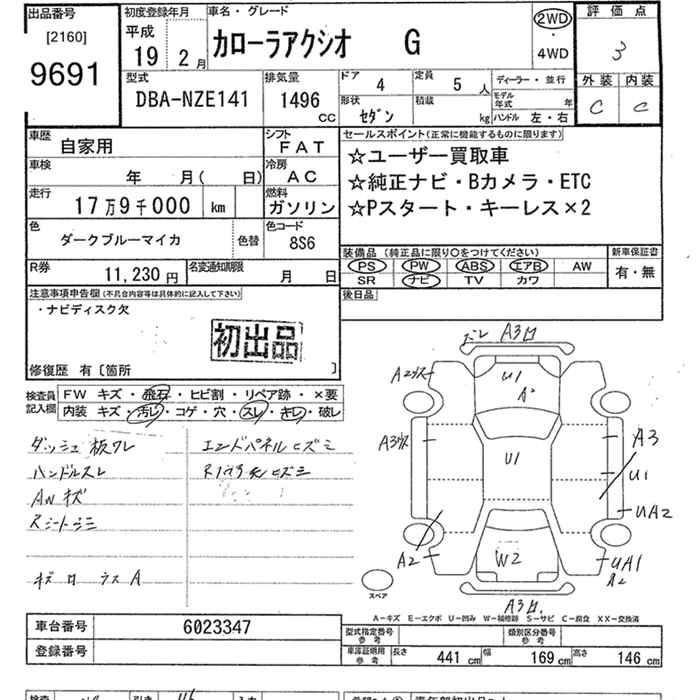 出品番号
[2160]
9691
初度登録年月
平成
19 2月
車名・グレード
カローラアクシオ G
2WD
・
4WD
評価点
3
外装 内装
C C
型式
DBA-NZE141
排気量
1496 CC
ドア 4
定員 5 人
形状 セダン
積載 kg
ディーラー・並行
モデル年式 年
ハンドル 左・右
車歴 自家用
シフト FAT
車検 年 月( 日)
冷房 AC
走行 17万9千000 km
燃料 ガソリン
色 ダークブルーマイカ 色替
色コード 8S6
R券 11,230円
名変通知期限 月 日
セールスポイント(正常に機能するものに限ります)
☆ユーザー買取車
☆純正ナビ・Bカメラ・ETC
☆Pスタート・キーレス×2
装備品(純正品に限り○をつけてください)
新車保証書
PS PW ABS エアB AW
SR ナビ TV カワ
有・無
後日品
注意事項申告欄(不具合内容等は具体的に記入して下さい)
・ナビディスク欠
初出品
修復歴 有〔箇所 〕
検査員記入欄
FW キズ・飛石・ヒビ割・リペア跡・×要
内装 キズ・汚レ・コゲ・穴・スレ・キレ・破レ
ダッシュ板ワレ
ハンドルスレ
エンドパネルヒズミ
ズレ A3
U1
A2
A3
U1
U1
UA2
A2
W2
UA1
A2
A3
スペア
A-キズ E-エクボ U-凹み W-補修跡 S-サビ C-腐食 XX-交換済
車台番号 6023347
登録番号
型式指定番号参考
類別区分番号参考
車庫証明用参考 長さ 441 cm 幅 169 cm 高さ 146 cm